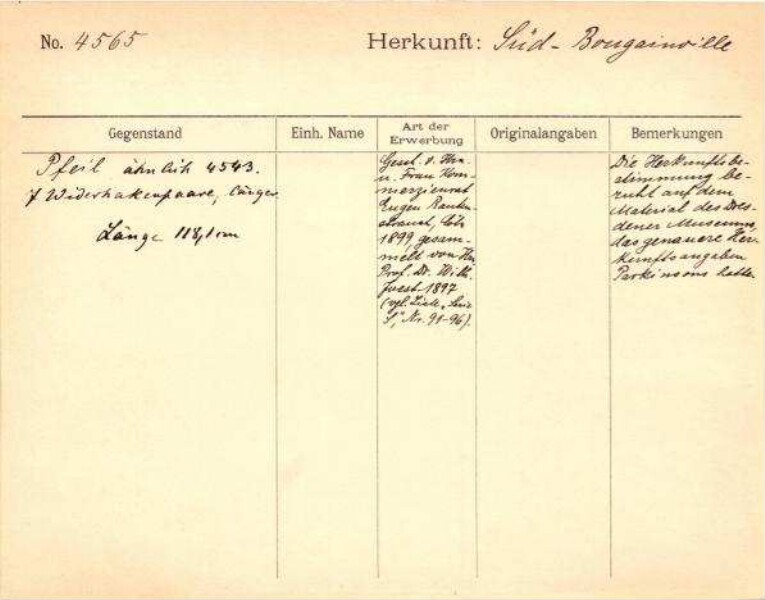 No. 4565
Herkunft: Süd-Bougainville
Gegenstand
Einh. Name
Art der Erwerbung
Originalangaben
Bemerkungen
Pfeil ähnlich 4543.
7 Widerhakenpaare, länger
Länge 118,1 cm
Gesch. v. Hrn.
u. Frau Kom-
merzienrat
Eugen Rauten-
strauch, Cöln
1899, gesam-
melt von Hrn
Prof. Dr. Wilh.
Joest 1897
(vgl. Liste „Serie
S", Nr. 91-96).
Die Herkunftsbe-
stimmung be-
ruht auf dem
Material des Dres-
dener Museums,
das genauere Her-
kunftsangaben
Parkinsons hatte.